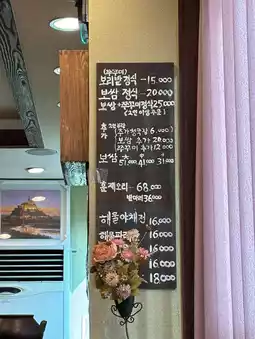 보리밥정식 - 15,000
보쌈 정식 - 20,000
보쌈+쭈꾸미정식 25,000
(2인이상주문)
추가
보쌈 추가 20,000
쭈꾸미 추가 12,000
보쌈
51,000 41,000 31,000
훈제오리 - 68,000
반마리 36,000
해물야채전 16,000
해물파 16,000
16,000
16,000
18,000